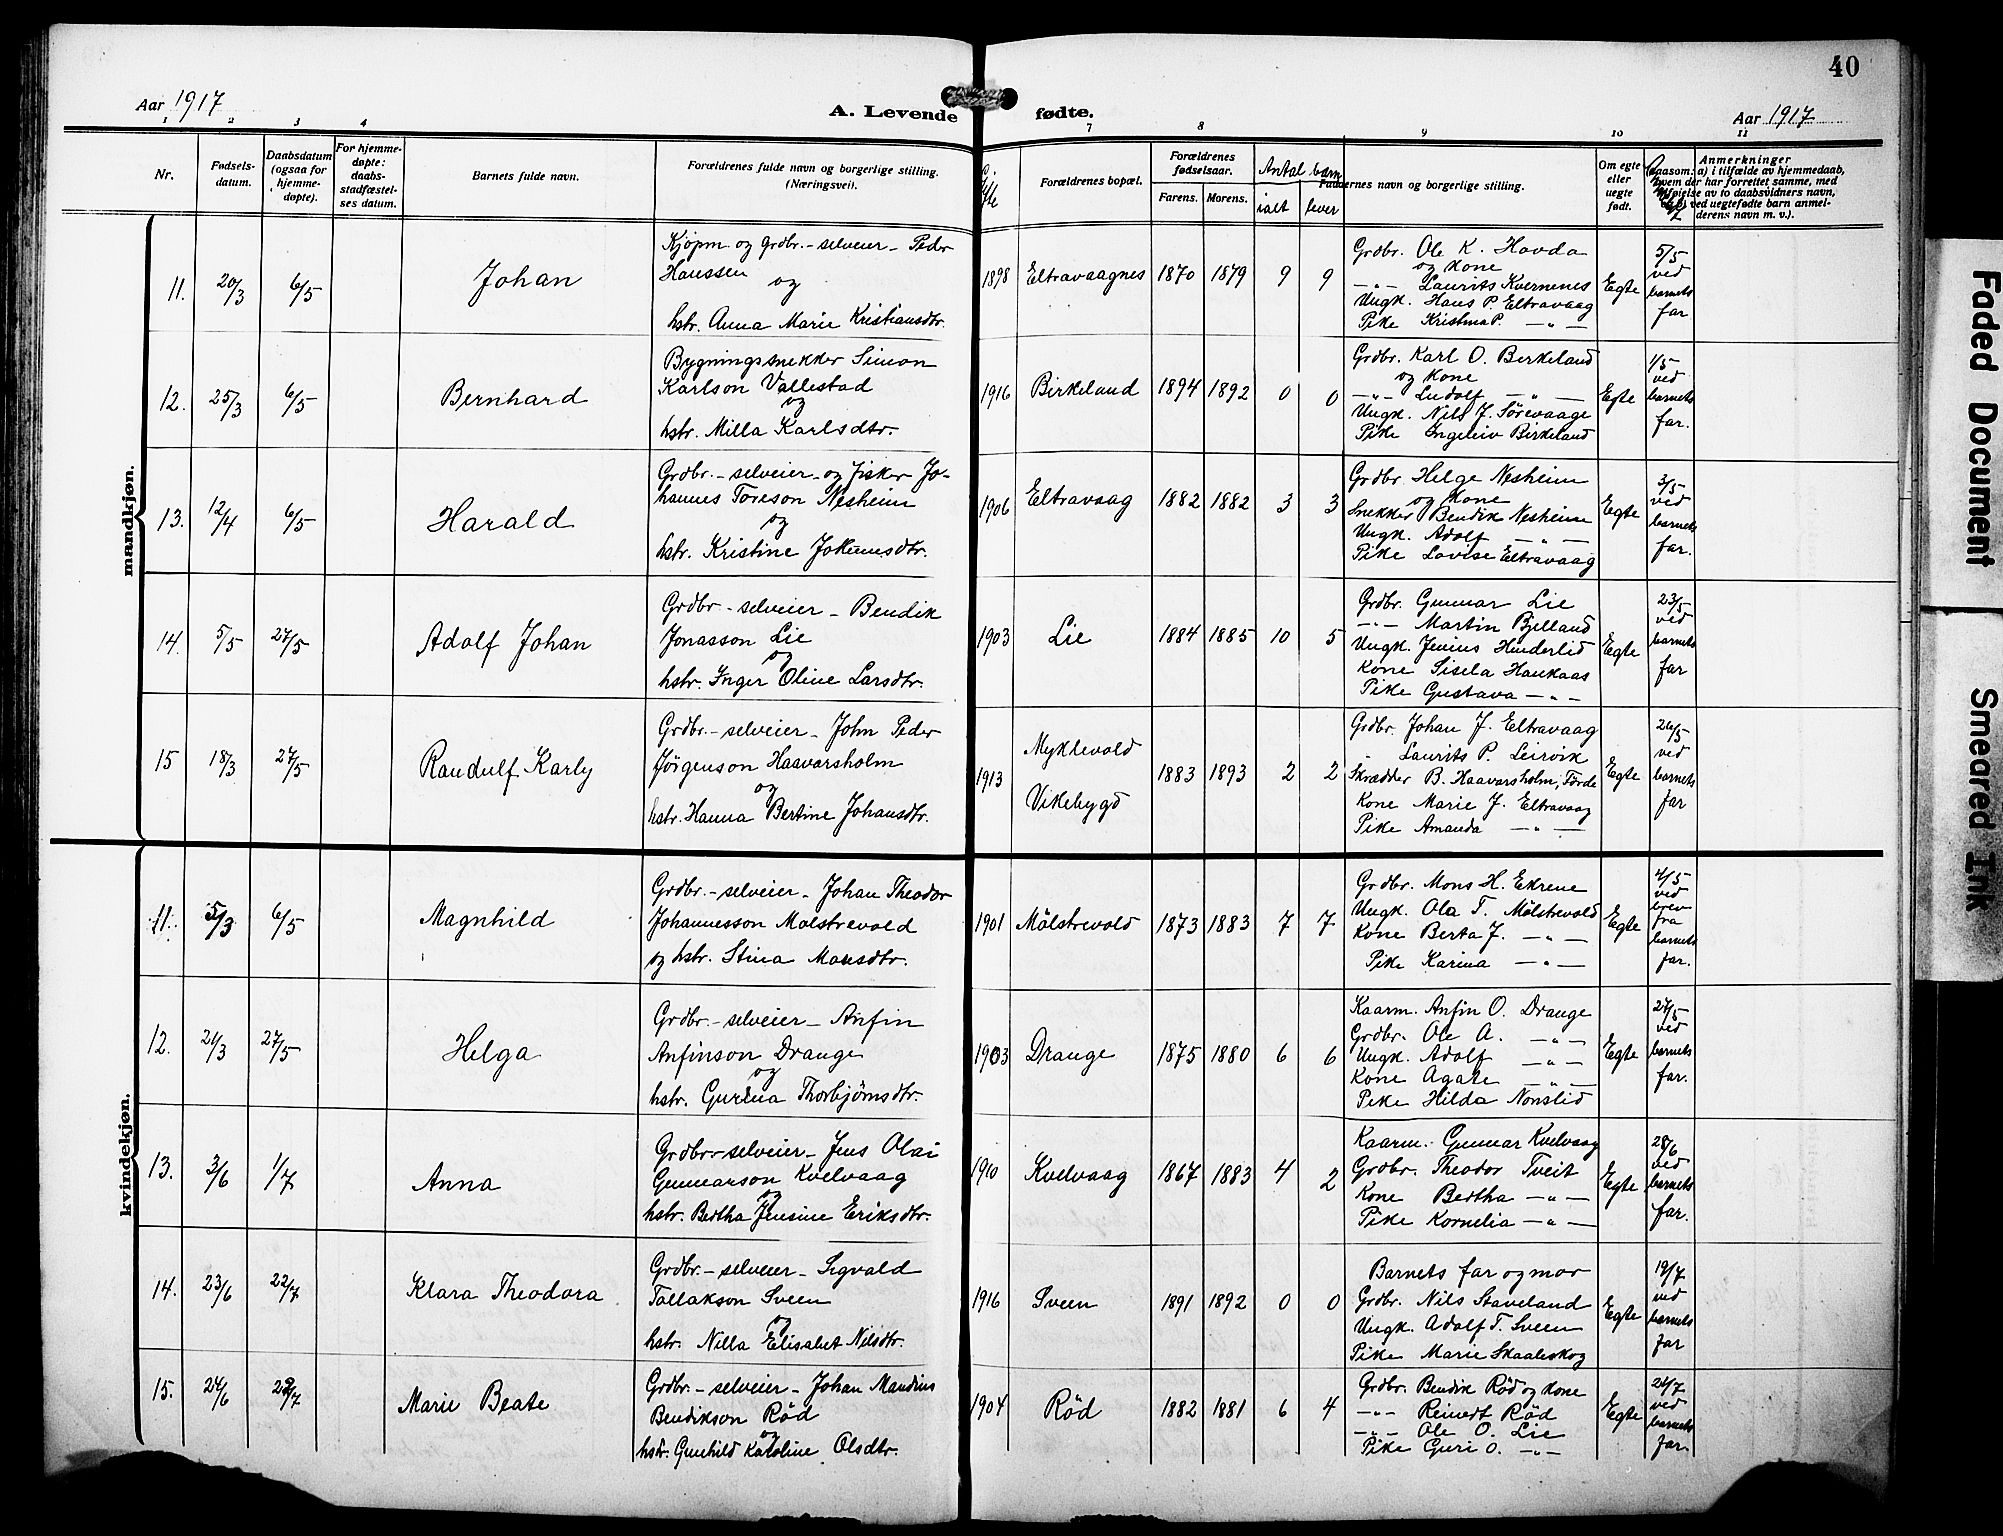 40
Aar 1917
A. Levende fødte.
Aar 1917
1 2 3 4 7 8 9 10 11
Nr.
Fødsels-
datum.
Daabsdatum
(ogsaa for
hjemme-
døpte).
For hjemme-
døpte:
daabs-
stadfæstel-
ses datum.
Barnets fulde navn.
Forældrenes fulde navn og borgerlige stilling.
(Næringsvei).
Forældrenes bopæl.
Forældrenes
fødselsaar.
Farens. Morens.
Antal barn
ialt lever
Faddernes navn og borgerlige stilling.
Om egte
eller
uegte
født.
Anmerkninger
(saasom: a) i tilfælde av hjemmedaab,
hvem der har forrettet samme, med
tilføielse av to daabsvidners navn,
b) ved uegtefødte barn anmel-
derens navn m. v.).
mandkjøn.
11. 20/3 6/5 Johan
Kjøpm. og grdbr. - selveier - Peder
Hanssen
og
hstr. Anna Marie Kristiansdtr.
1898 Eltravaagnes 1870 1879 9 9
Grdbr. Ole K. Hovda
og kone
-"- Laurits Kvernenes
Ungk. Hans P. Eltravaag
Pike Kristina P. -"-
Egte
5/5
ved
barnets
far
12. 25/3 6/5 Bernhard
Bygningssnekker Simon
Karlson Vallestad
og
hstr. Milla Karlsdtr.
1916 Birkeland 1894 1892 0 0
Grdbr. Karl O. Birkeland
og kone
-"- Ludolf -"-
Ungk. Nils J. Sørevaage
Pike Ingeleiv Birkeland
Egte
1/5
ved
barnets
far.
13. 12/4 6/5 Harald
Grdbr. - selveier og fisker Jo-
hannes Toreson Nesheim
og
hstr. Kristine Jokumsdtr.
1906 Eltravaag 1882 1882 3 3
Grdbr. Helge Nesheim
og kone
Snekker Bendik Nesheim
Ungk. Adolf -"-
Pike Lovise Eltravaag
Egte
3/5
ved
barnets
far.
14. 5/5 27/5 Adolf Johan
Grdbr - selveier - Bendik
Jonasson Lie
og
hstr. Inger Oline Larsdtr.
1903 Lie 1884 1885 10 5
Grdbr. Gunnar Lie
-"- Martin Bjelland
Ungk. Jenius Hinderlid
Kone Sisela Haukaas
Pike Gustava -"-
Egte
23/5
ved
barnets
far
15 18/3 27/5 Randulf Karly
Grdbr. - selveier - John Peder
Jørgenson Haavarsholm
og
hstr. Hanna Bertine Johansdtr.
1913 Myklevold
Vikebygd
1883 1893 2 2
Grdbr. Johan J. Eltravaag
Laurits P. Leirvik
Skrædder B. Haavarsholm, Førde
Kone Marie J. Eltravaag
Pike Amanda -"-
Egte
26/5
ved
barnets
far
kvindekjøn.
11. 5/3 6/5 Magnhild
Grdbr. - selveier - Johan Theodor
Johannesson Mølstrevold
og hstr. Stina Monsdtr.
1901 Mølstrevold 1873 1883 7 7
Grdbr. Mons H. Ekrene
Ungk. Ola T. Mølstrevold
Kone Berta J. -"-
Pike Karina -"-
Egte
4/5
ved
brev
fra
barnets
far.
12. 21/3 27/5 Helga
Grdbr. - selveier - Anfin
Anfinson Drange
og
hstr. Gurina Thorbjørnsdtr.
1903 Drange 1875 1880 6 6
Kaarm. Anfin O. Drange
Grdbr. Ole A. -"-
Ungk. Adolf -"-
Kone Agate -"-
Pike Hilda Nonslid
Egte
27/5
ved
barnets
far.
13. 3/6 1/7 Anna
Grdbr - selveier - Jens Olai
Gunnarson Kvelvaag
og
hstr. Bertha Jensine Eriksdtr.
1910 Kvelvaag 1867 1883 4 2
Kaarm. Gunnar Kvelvaag
Grdbr. Theodor Tveit
Kone Bertha -"-
Pike Kornelia -"-
Egte
28/6
ved
barnets
far.
14. 23/6 22/7 Klara Theodora
Grdbr. - selveier - Sigvald
Tollakson Sveen
og
hstr. Nilla Elisabet Nilsdtr.
1916 Sveen 1891 1892 0 0
Barnets far og mor
Grdbr. Nils Staveland
Ungk. Adolf T. Sveen
Pike Marie Skaaleskog
Egte
19/7
ved
barnets
far
15. 24/6 /7 Marie Beate
Grdbr. - selveier - Johan Mandius
Bendikson Rød
og
hstr. Gunhild Karoline Olsdtr.
1904 Rød 1882 1881 6 4
Grdbr. Bendik Rød og kone
-"- Reinert Rød
-"- Ole O. Lie
Pike Guri O. -"-
Egte
24/7
ved
barnets
far.
Faded Document
Smeared Ink